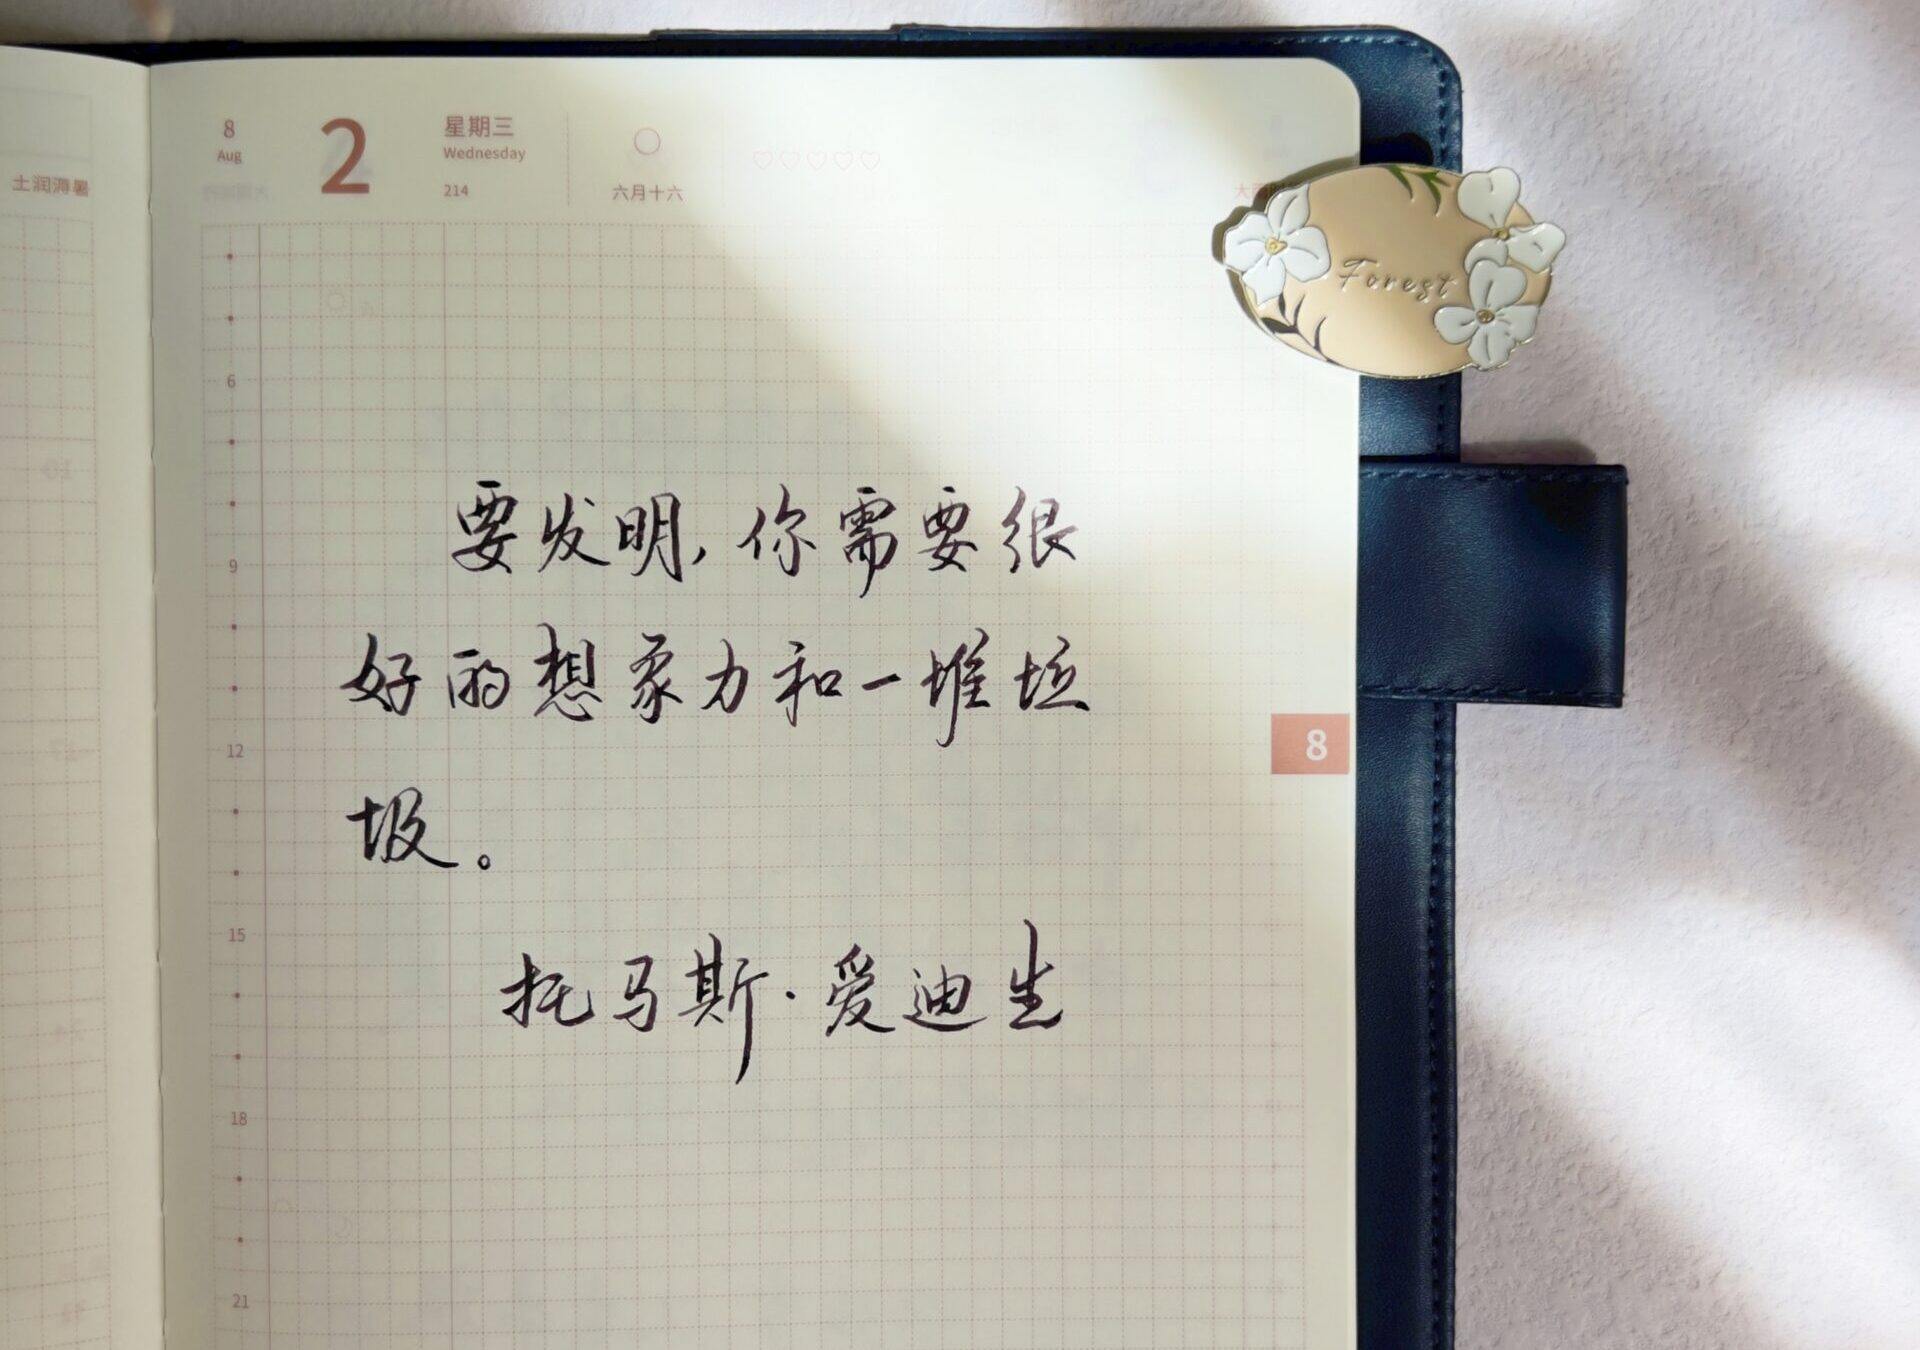 土润溽暑
8
Aug
2
星期三
Wednesday
214
六月十六
Forest
6
9
12
15
18
21
8
要发明，你需要很
好的想象力和一堆垃
圾。
托马斯·爱迪生